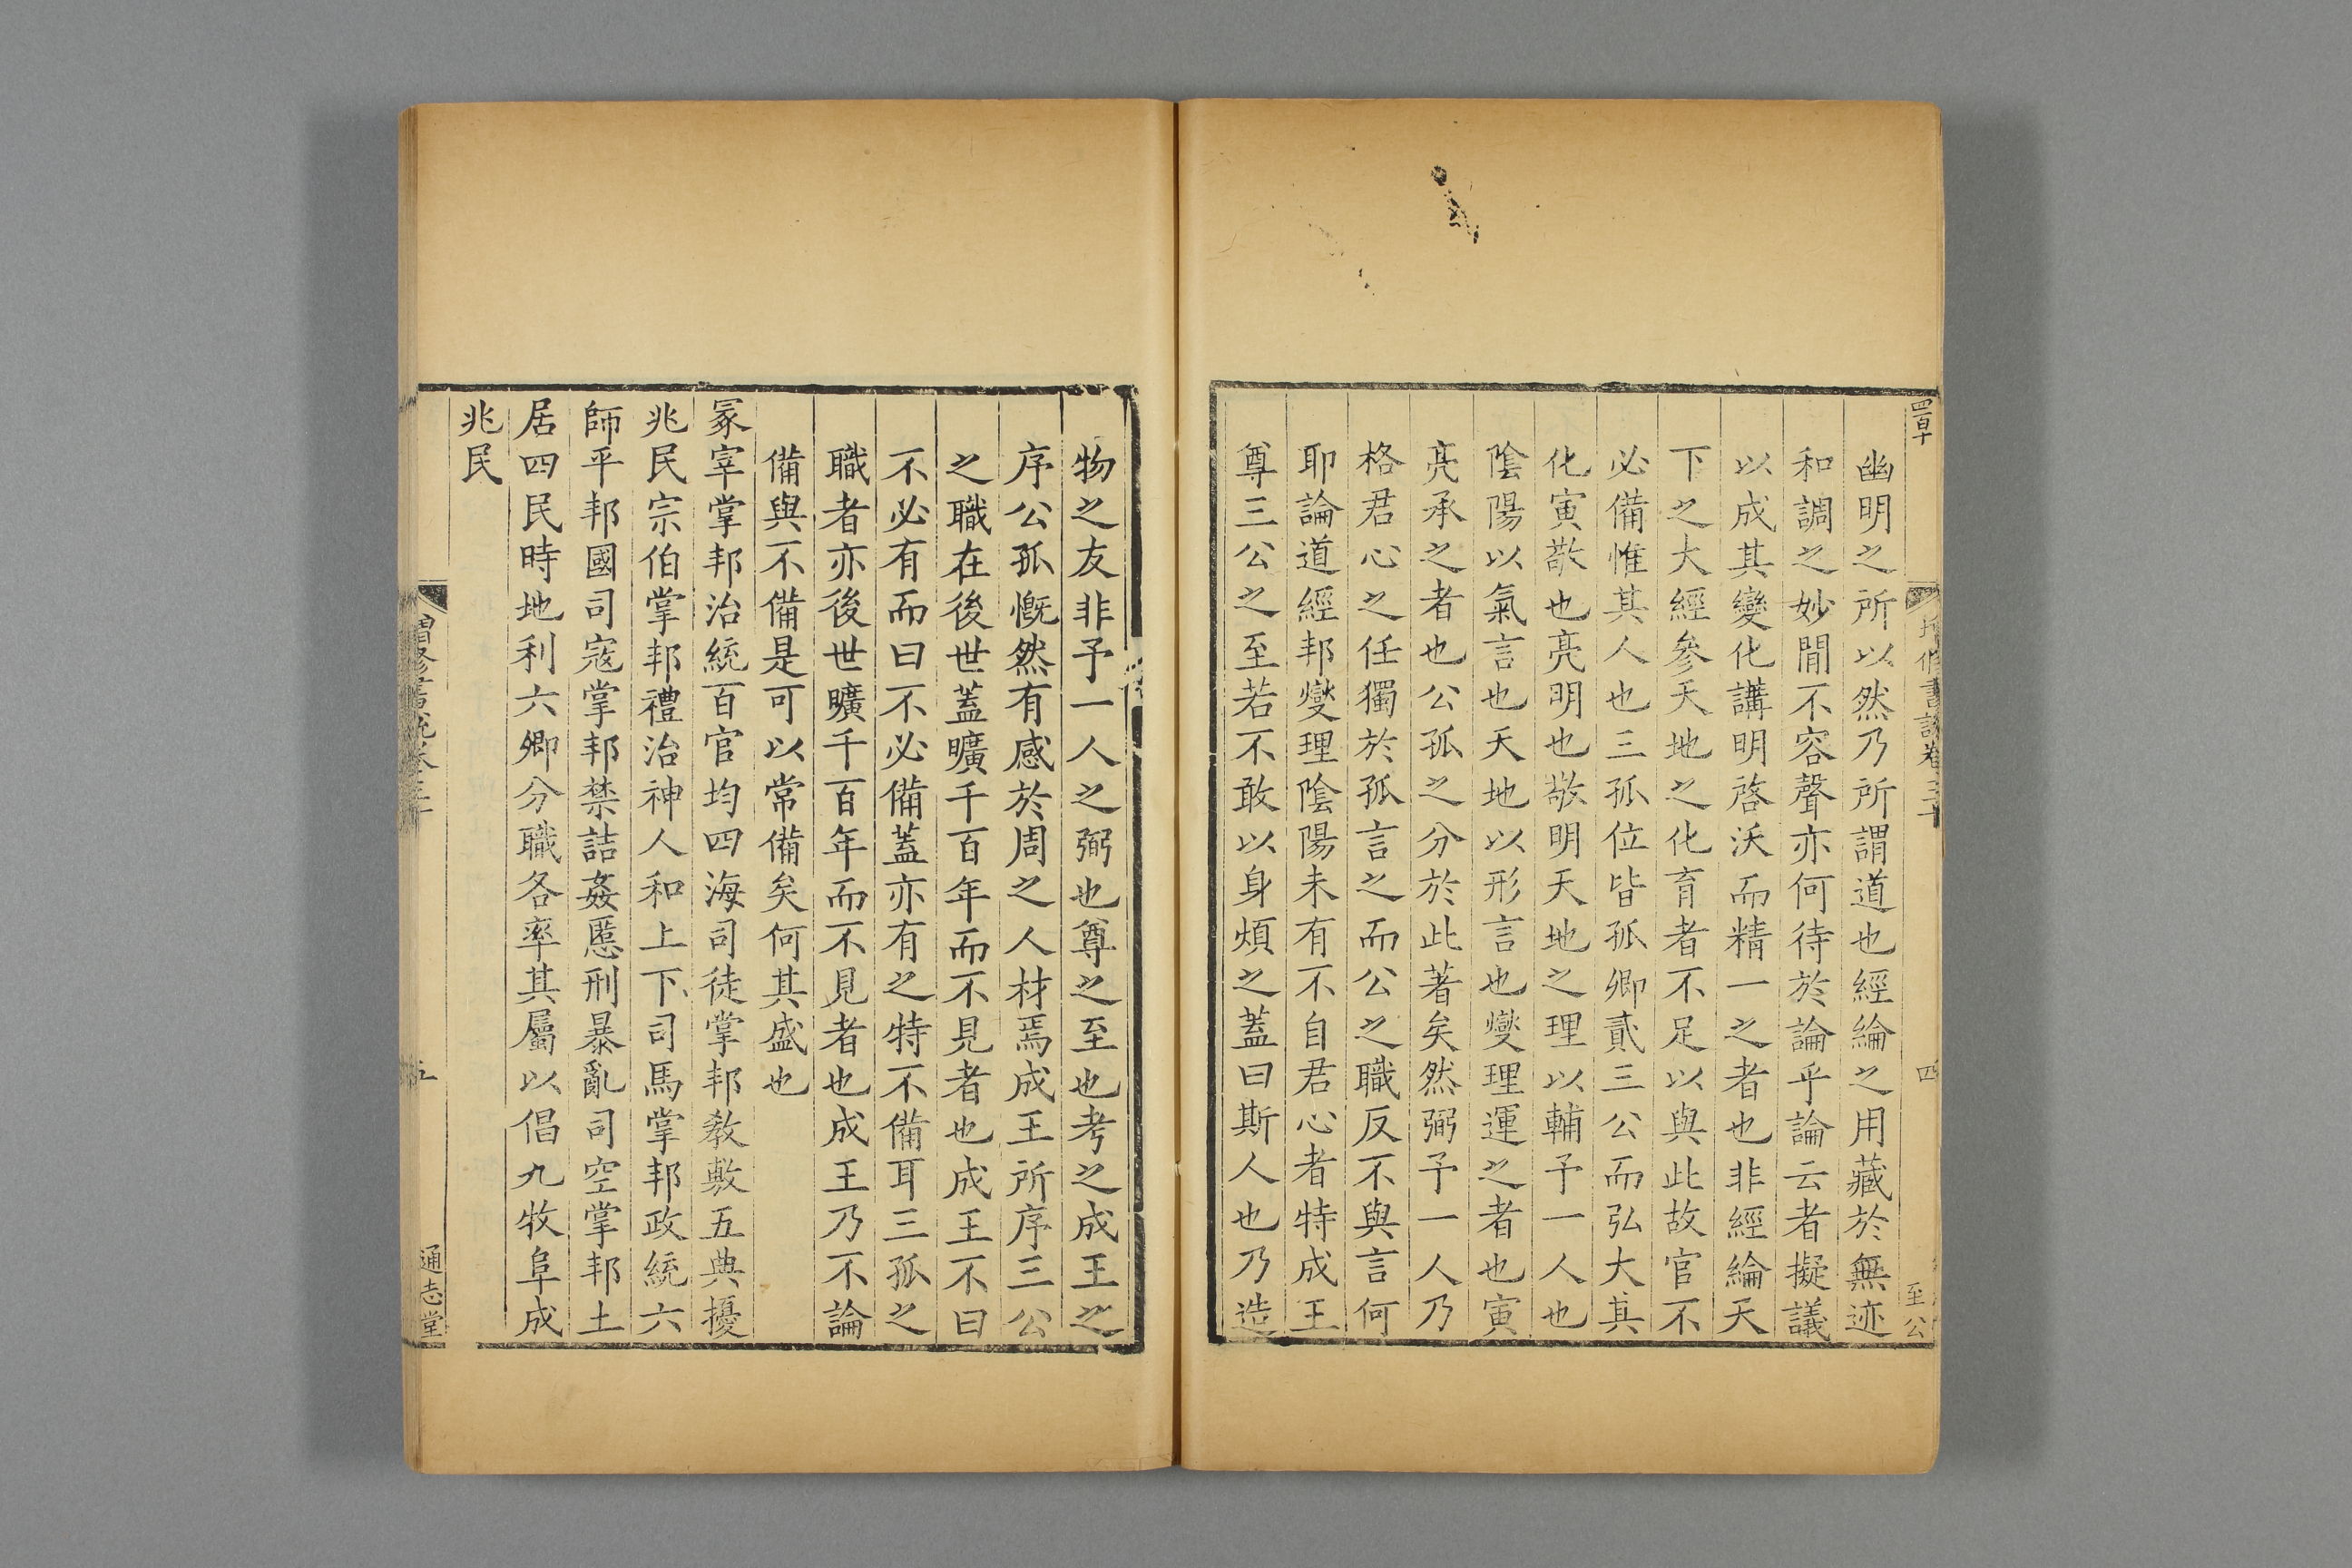 幽明之所以然乃所謂道也經綸之用藏於無迹
和調之妙閒不容聲亦何待於論乎論云者擬議
以成其變化講明啓沃而精一之者也非經綸天
下之大經參天地之化育者不足以與此故官不
必備惟其人也三孤位皆孤卿貳三公而弘大其
化寅敬也亮明也敬明天地之理以輔予一人也
陰陽以氣言也天地以形言也燮理運之者也寅
亮承之者也公孤之分於此著矣然弼予一人乃
格君心之任獨於孤言之而公之職反不與言何
耶論道經邦燮理陰陽未有不自君心者特成王
尊三公之至若不敢以身煩之蓋曰斯人也乃造
物之友非予一人之弼也尊之至也考之成王之
序公孤慨然有感於周之人材焉成王所序三公
之職在後世蓋曠千百年而不見者也成王不曰
不必有而曰不必備蓋亦有之特不備耳三孤之
職者亦後世曠千百年而不見者也成王乃不論
備與不備是可以常備矣何其盛也
冢宰掌邦治統百官均四海司徒掌邦敎敷五典擾
兆民宗伯掌邦禮治神人和上下司馬掌邦政統六
師平邦國司寇掌邦禁詰姦慝刑暴亂司空掌邦土
居四民時地利六卿分職各率其屬以倡九牧阜成
兆民
增修書說卷三十
五
通志堂